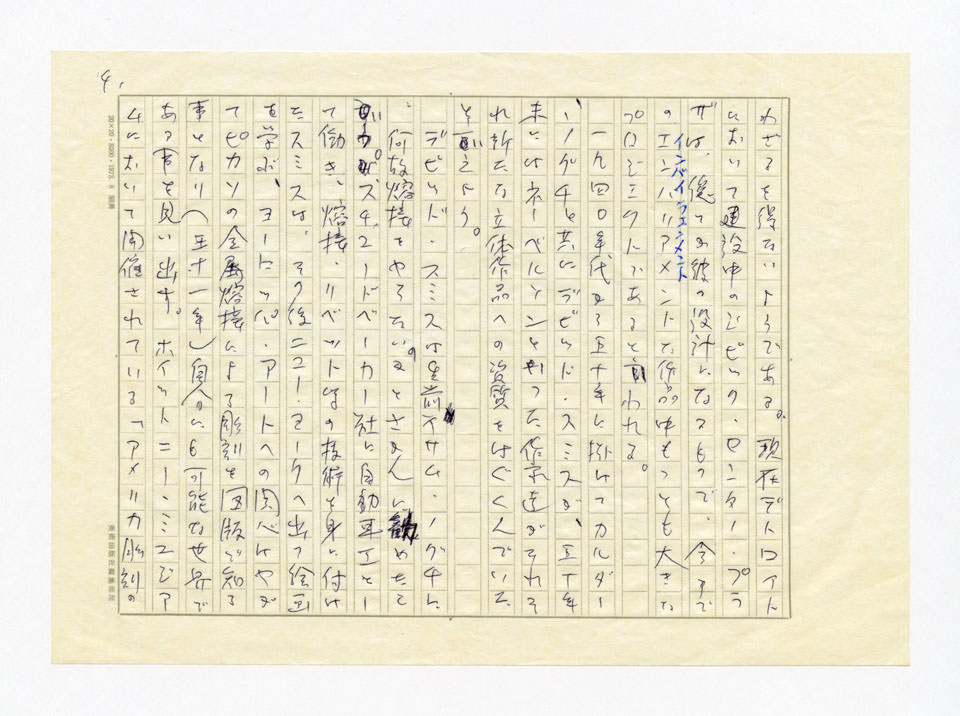 4.
わざるを得ないようである。現在デトロイト
において建設中のシビック・センター・プラ
ザは、総て彼の設計になるもので、今まで
のエンバイアメントな作品中もっとも大きな
インバイラメンメント
プロジェクトであると言われる。
一九四〇年代から五十年に掛けてカルダー
、ノグチと共にデビッド・スミスが、五十年
末にはネーベルソンといった作家達がそれぞ
れ新たな立体作品への資質をはぐくんでいた
と言えよう。
デビッド・スミスは生前イサム・ノグチに
、何故熔接をやっているのとさかんに勧めたと
いう。スチューードベーカー社に自動車工とし
て働き、熔接・リベット等の技術を身に付け
たスミスは、その後ニュー・ヨークへ出て絵画
を学ぶ、ヨーロッパ・アートへの関心はやが
てピカソの金属熔接による彫刻を図版で知る
事となり(三十一年)自分にも可能な世界で
ある事を見い出す。ホイットニー・ミュジア
ムにおいて開催されている「アメリカ彫刻の
20×20